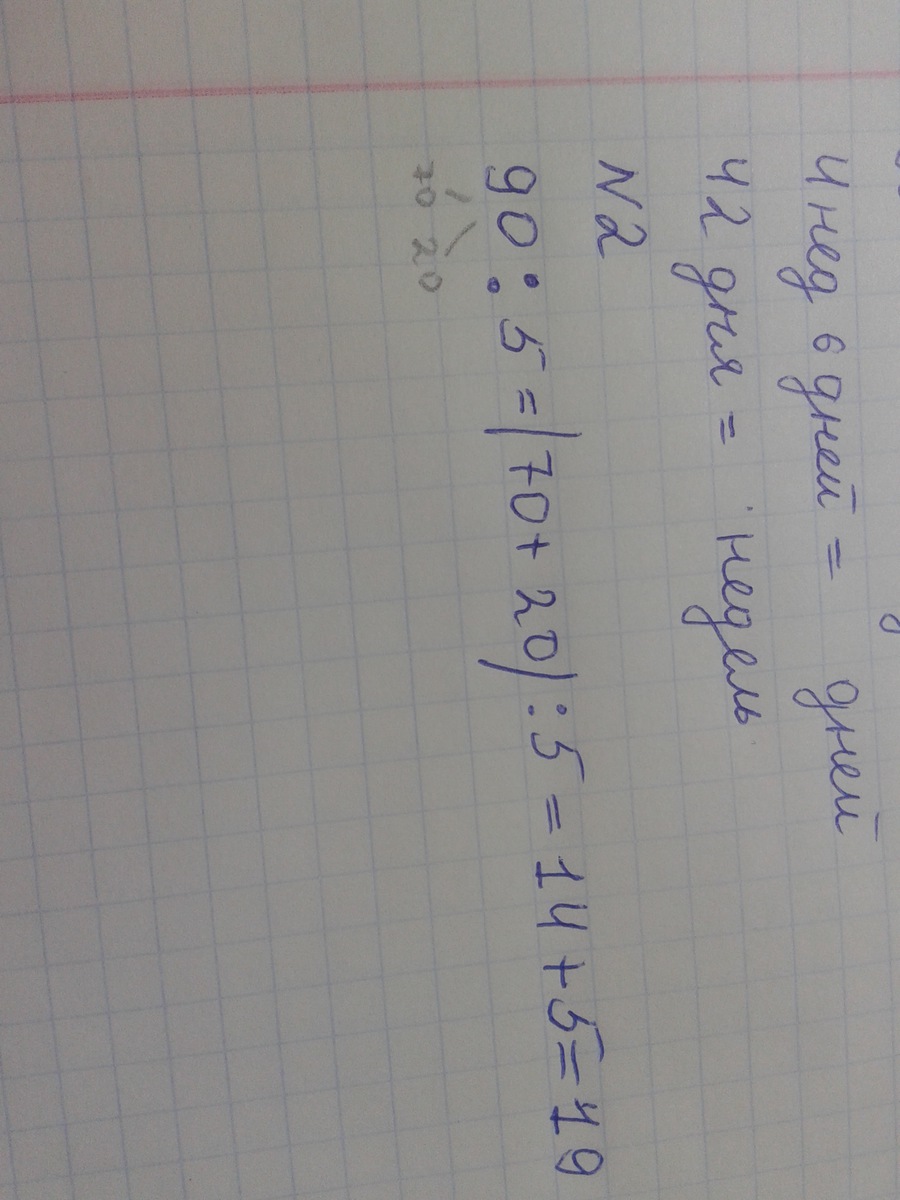 4 нед 6 дней = дней
42 дня = недель
N 2
90 : 5 = (70 + 20) : 5 = 14 + 5 = 19
70 20